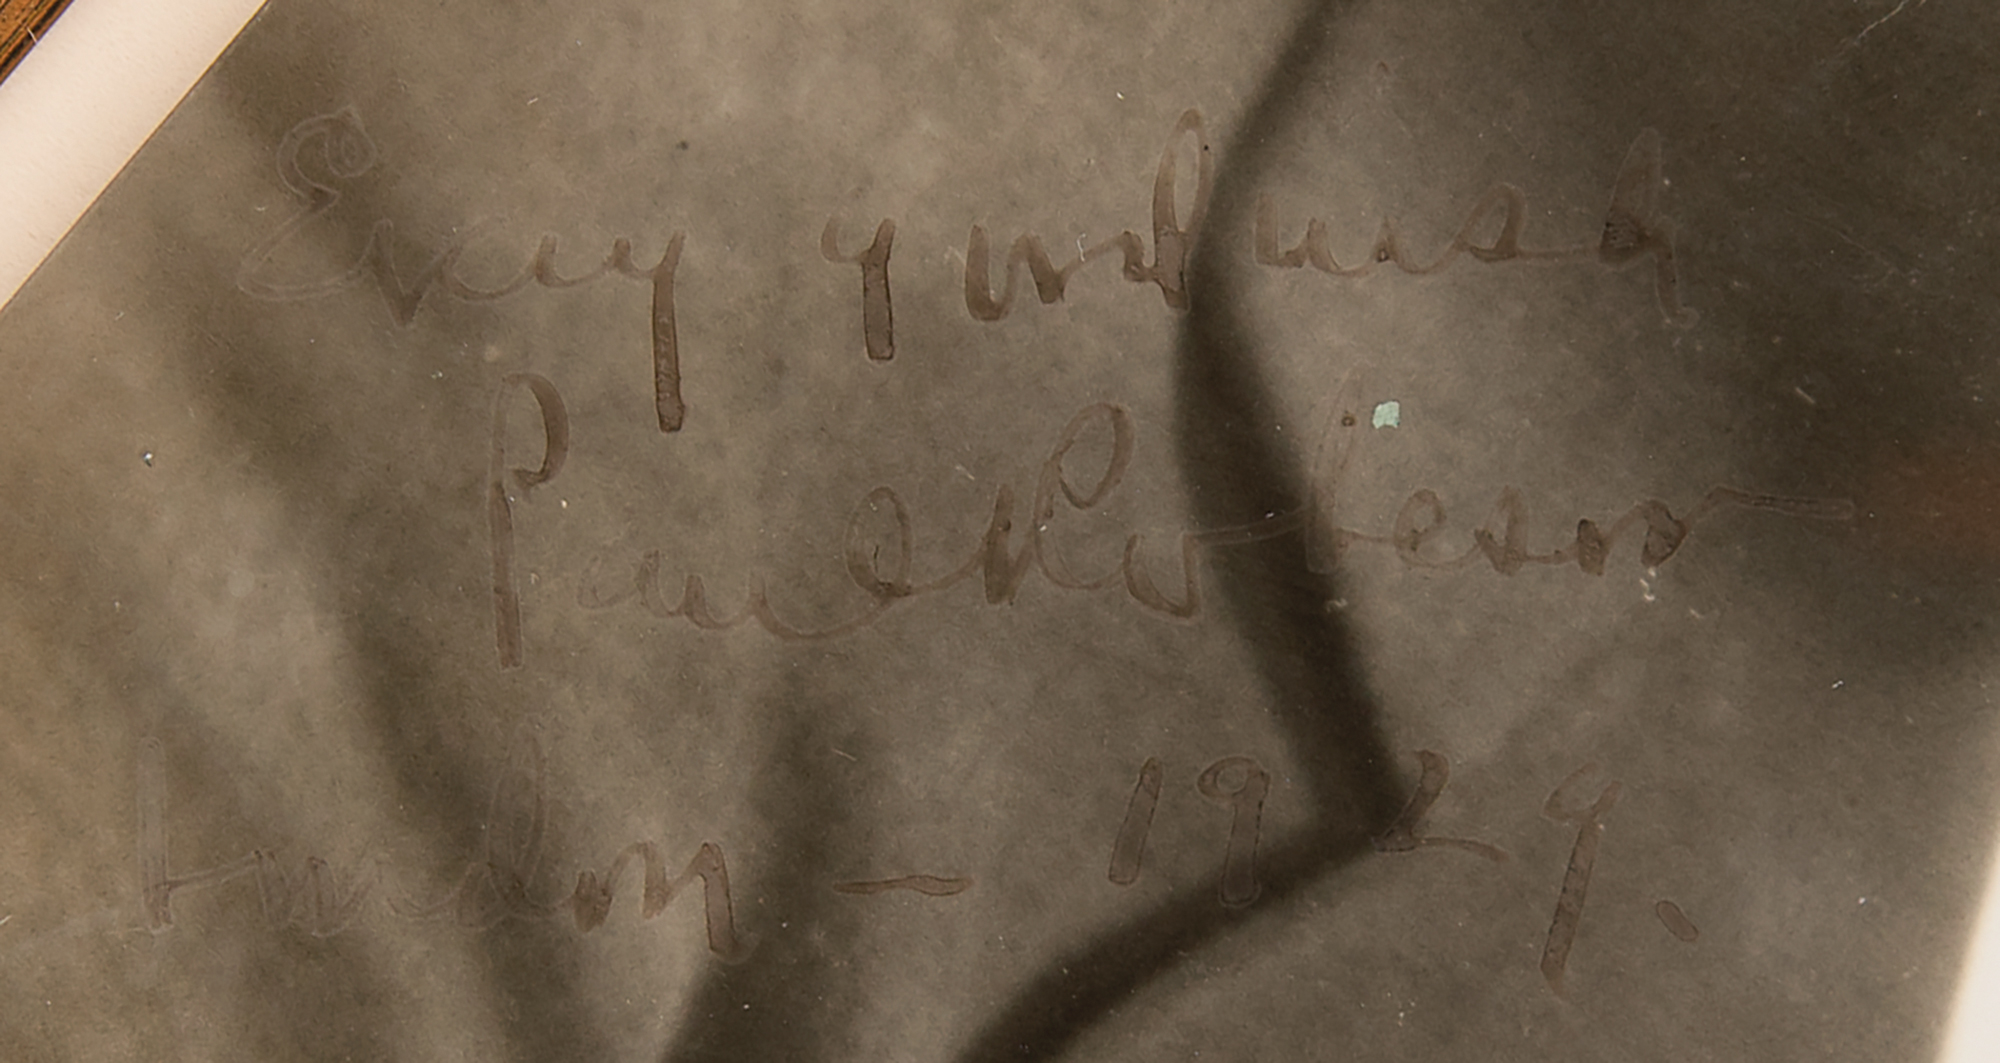 Every good wish
Paul Robeson
London — 1929.